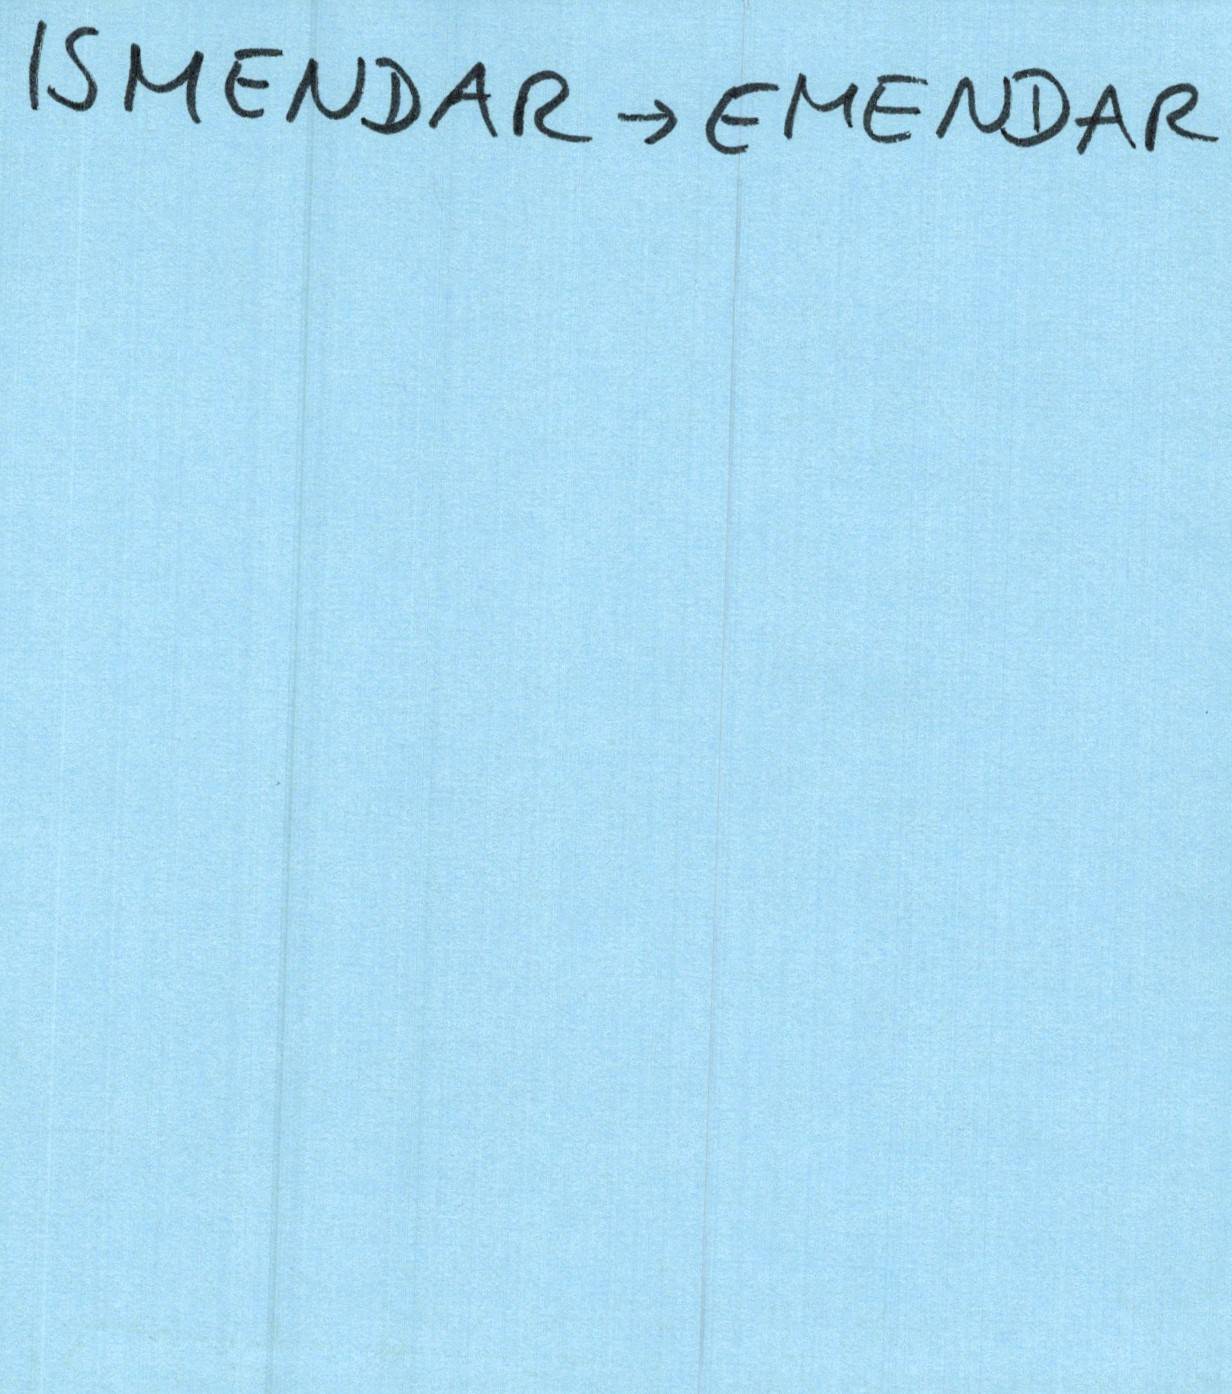 ISMENDAR → EMENDAR